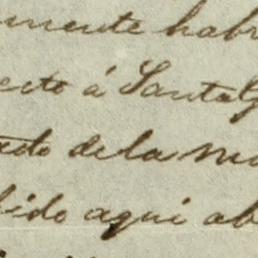 mente habr
ecto á Santa G
tado de la ma
bido aqui ab